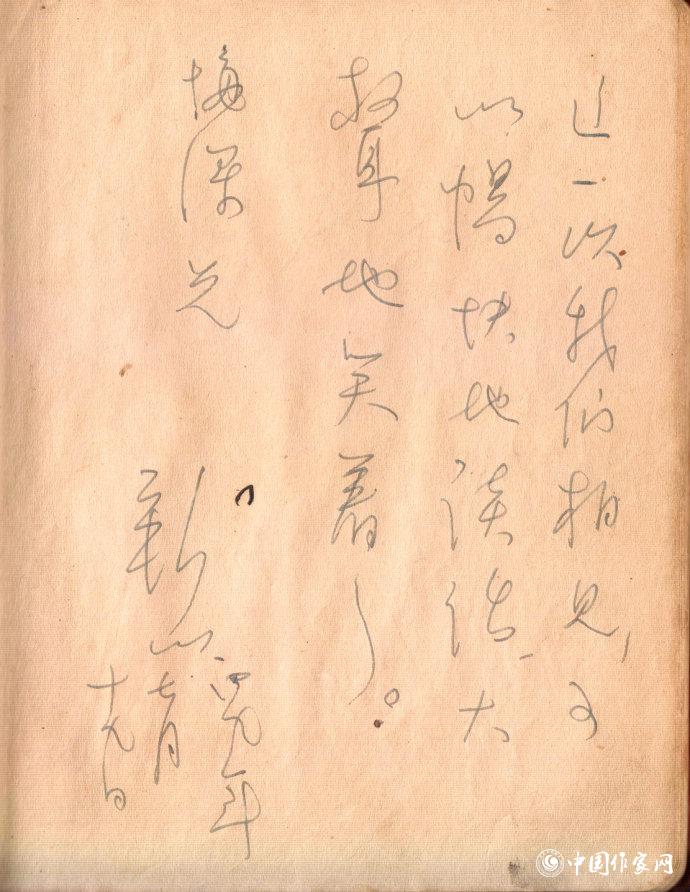 这一次我们相见，可
以畅快地谈话、大
聲地笑着了。
兄
靳以
四九年
七月
十九日
中国作家网